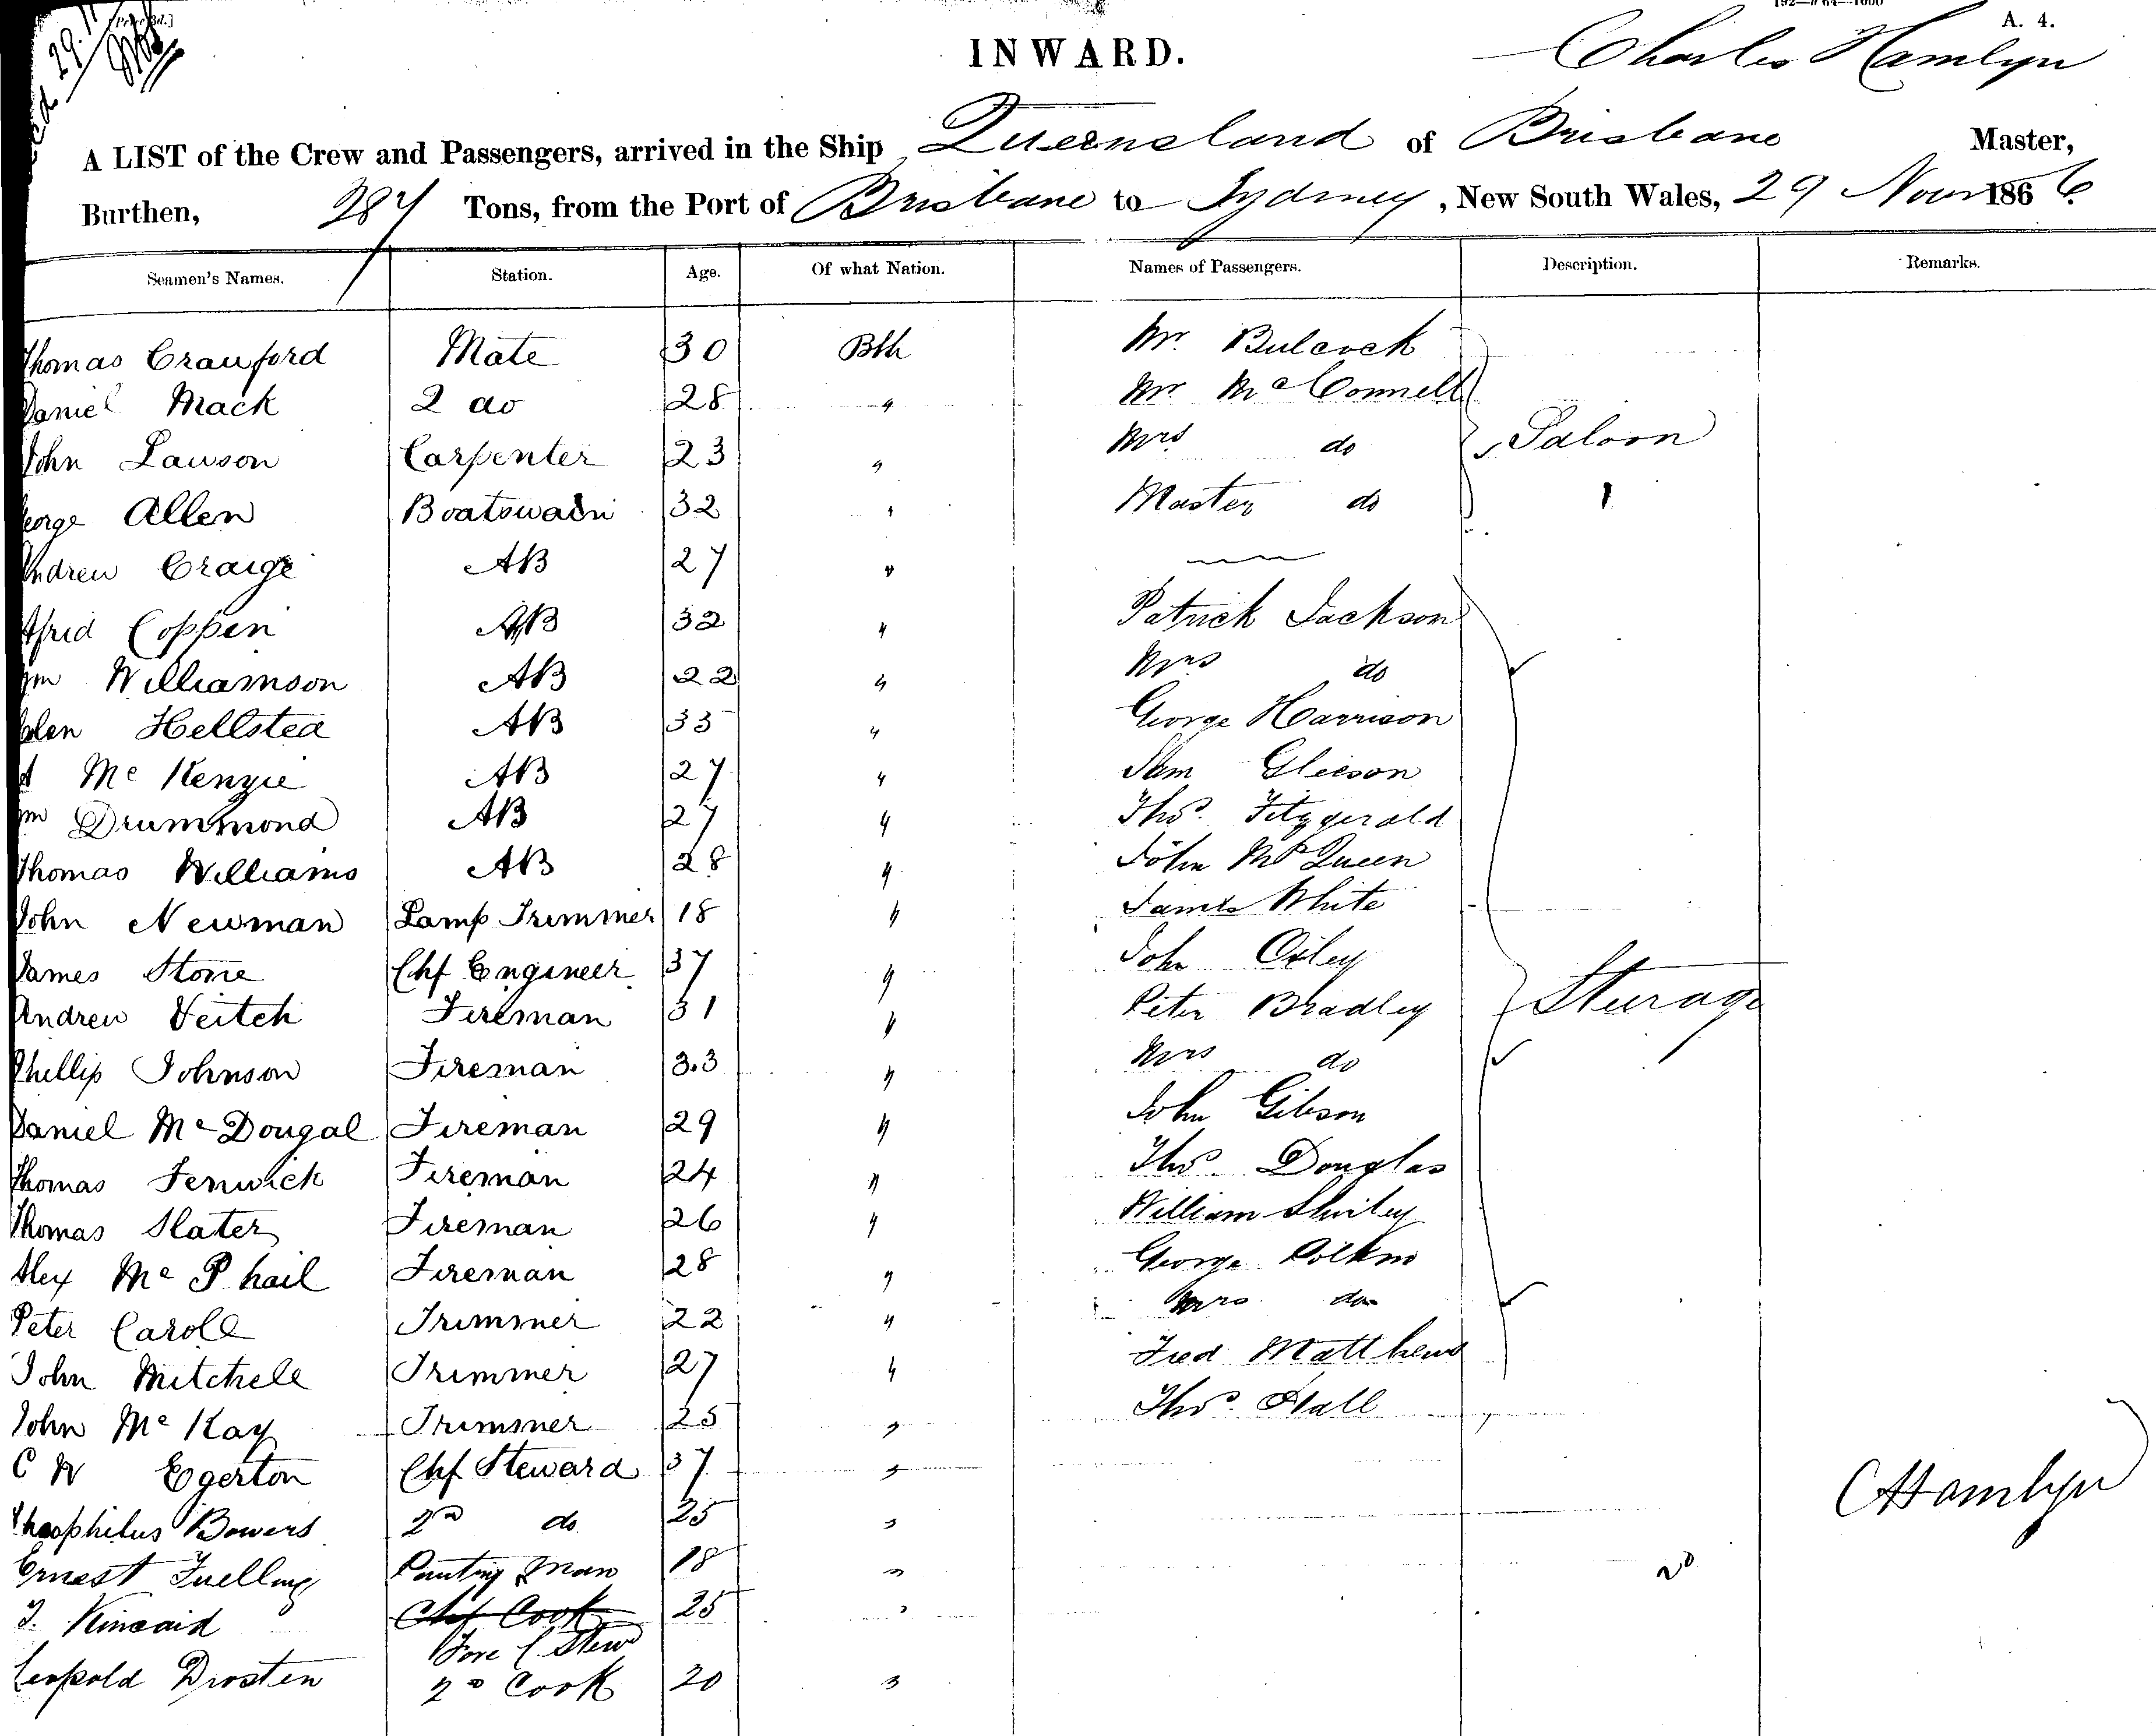 [Price 3d.]
A. 4.
INWARD.
Charles Hamlyn
A LIST of the Crew and Passengers, arrived in the Ship Queensland of Brisbane Master,
Burthen, 284 Tons, from the Port of Brisbane to Sydney, New South Wales, 29 Novr 1866
Seamen's Names. Station. Age. Of what Nation. Names of Passengers. Description. Remarks.
Thomas Crauford Mate 30 Bth Mr. Bulcock
Daniel Mack 2 do 28 " Mr McConnell
John Lawson Carpenter 23 " Mrs do Saloon
George Allen Boatswain 32 " Master do
Andrew Craige AB 27 "
Alfrid Coppen AB 32 " Patrick Jackson
Wm Williamson AB 22 " Mrs do
Hellsted AB 33 " George Harrison
McKenzie AB 27 " Sam Gleeson
Wm Drummond AB 27 " Thos. Fitzgerald
Thomas Williams AB 28 " John McQueen
John Newman Lamp Trimmer 18 " James White
James Stone Chf Engineer 37 " John Oxley
Andrew Veitch Fireman 31 " Peter Bradley Sturage
Phillip Johnson Fireman 33 " Mrs do
Daniel McDougal Fireman 29 " John Gibson
Thomas Fenwick Fireman 24 " Thos. Douglas
Thomas Slater Fireman 26 " William Shirley
Alex McPhail Fireman 28 " George
Peter Caroll Trimmer 22 " Mrs do
John Mitchell Trimmer 27 " Fred Matthews
John McKay Trimmer 25 " Thos. Hall
C W Egerton Chf Steward 37 " CHamlyn
Theophilus Bowers 2nd do 25 "
Ernest Fuelling Panting Man 18 " 20
J. Kincaid Chf Cook 25 "
Fore C Stewd
Leopold Drosten 2d Cook 20 "